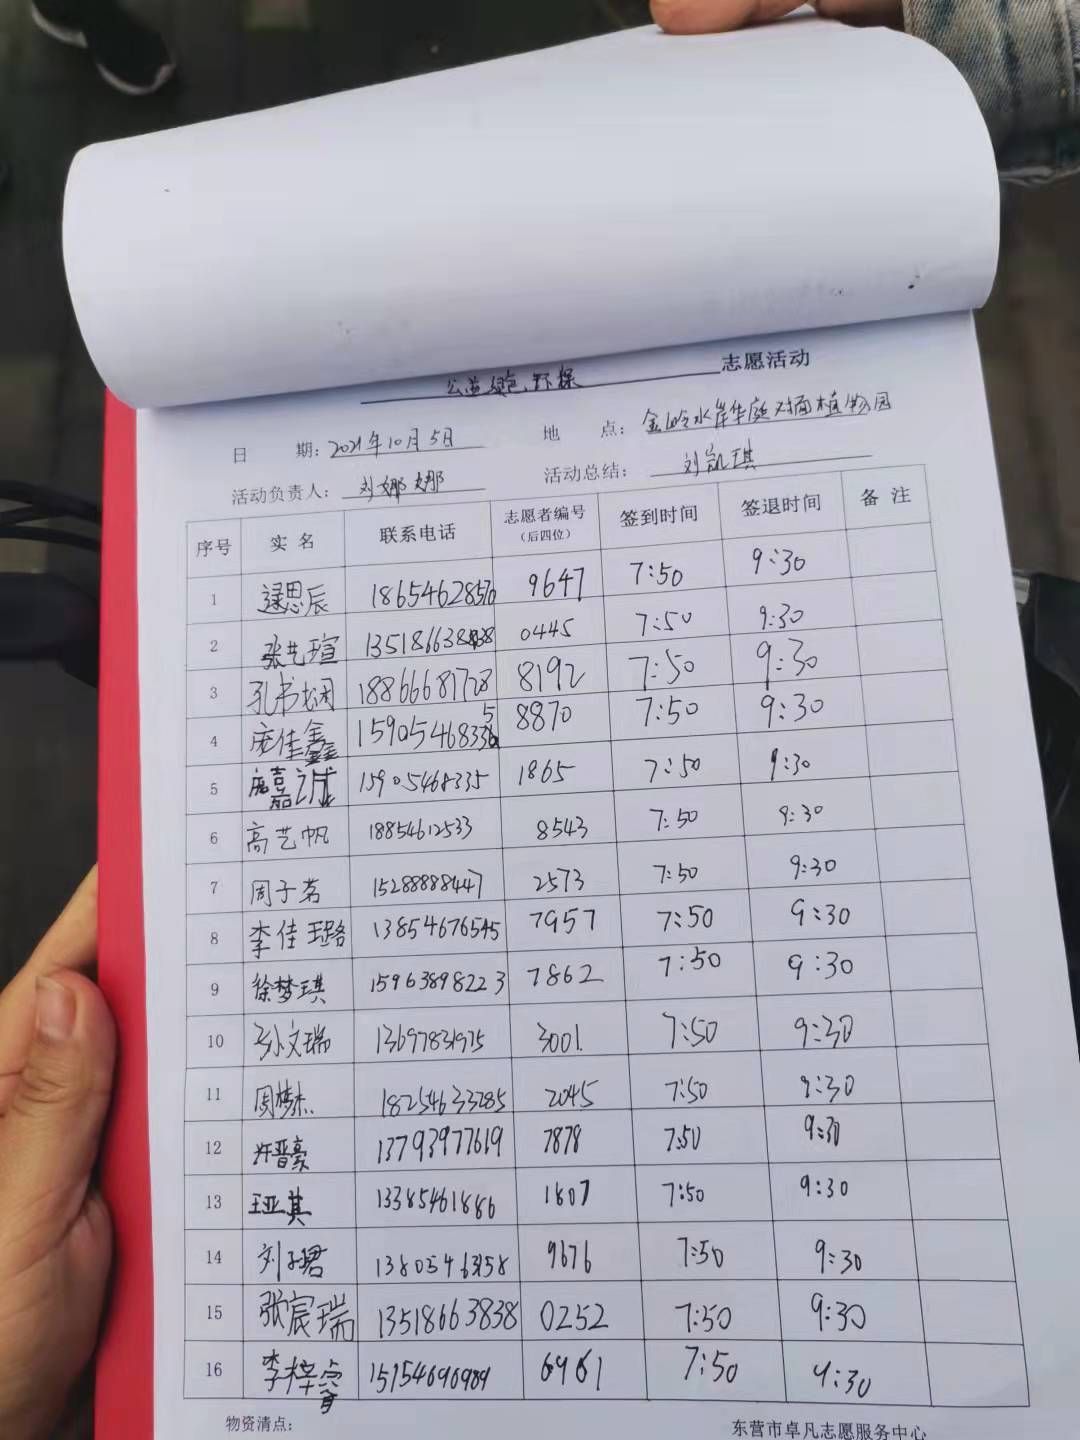 公益绿色、环保 志愿活动
日 期：2021年10月5日 地 点：金岭水岸华庭对面植物园
活动负责人：刘娜娜 活动总结：刘凯琪
序号 实名 联系电话 志愿者编号（后四位） 签到时间 签退时间 备注
1 逯思辰 18654628570 9647 7:50 9:30
2 张艺瑄 13518663838 0445 7:50 9:30
3 孔书娴 18866681728 8192 7:50 9:30
4 庞佳鑫 15905468335 8870 7:50 9:30
5 嘉诚 15905468335 1865 7:50 9:30
6 高艺帆 18854612533 8543 7:50 9:30
7 周子茗 15288888447 2573 7:50 9:30
8 李佳璐 13854676545 7957 7:50 9:30
9 徐梦琪 15963898223 7862 7:50 9:30
10 孙文瑞 13697831975 3001. 7:50 9:30
11 周梦杰 18254633285 2045 7:50 9:30
12 许晋豪 13793977619 7878 7:50 9:30
13 王亚其 13385461886 1807 7:50 9:30
14 刘子君 13805463158 9676 7:50 9:30
15 张宸瑞 13518663838 0252 7:50 9:30
16 李梓睿 15154696989 6961 7:50 9:30
物资清点： 东营市卓凡志愿服务中心